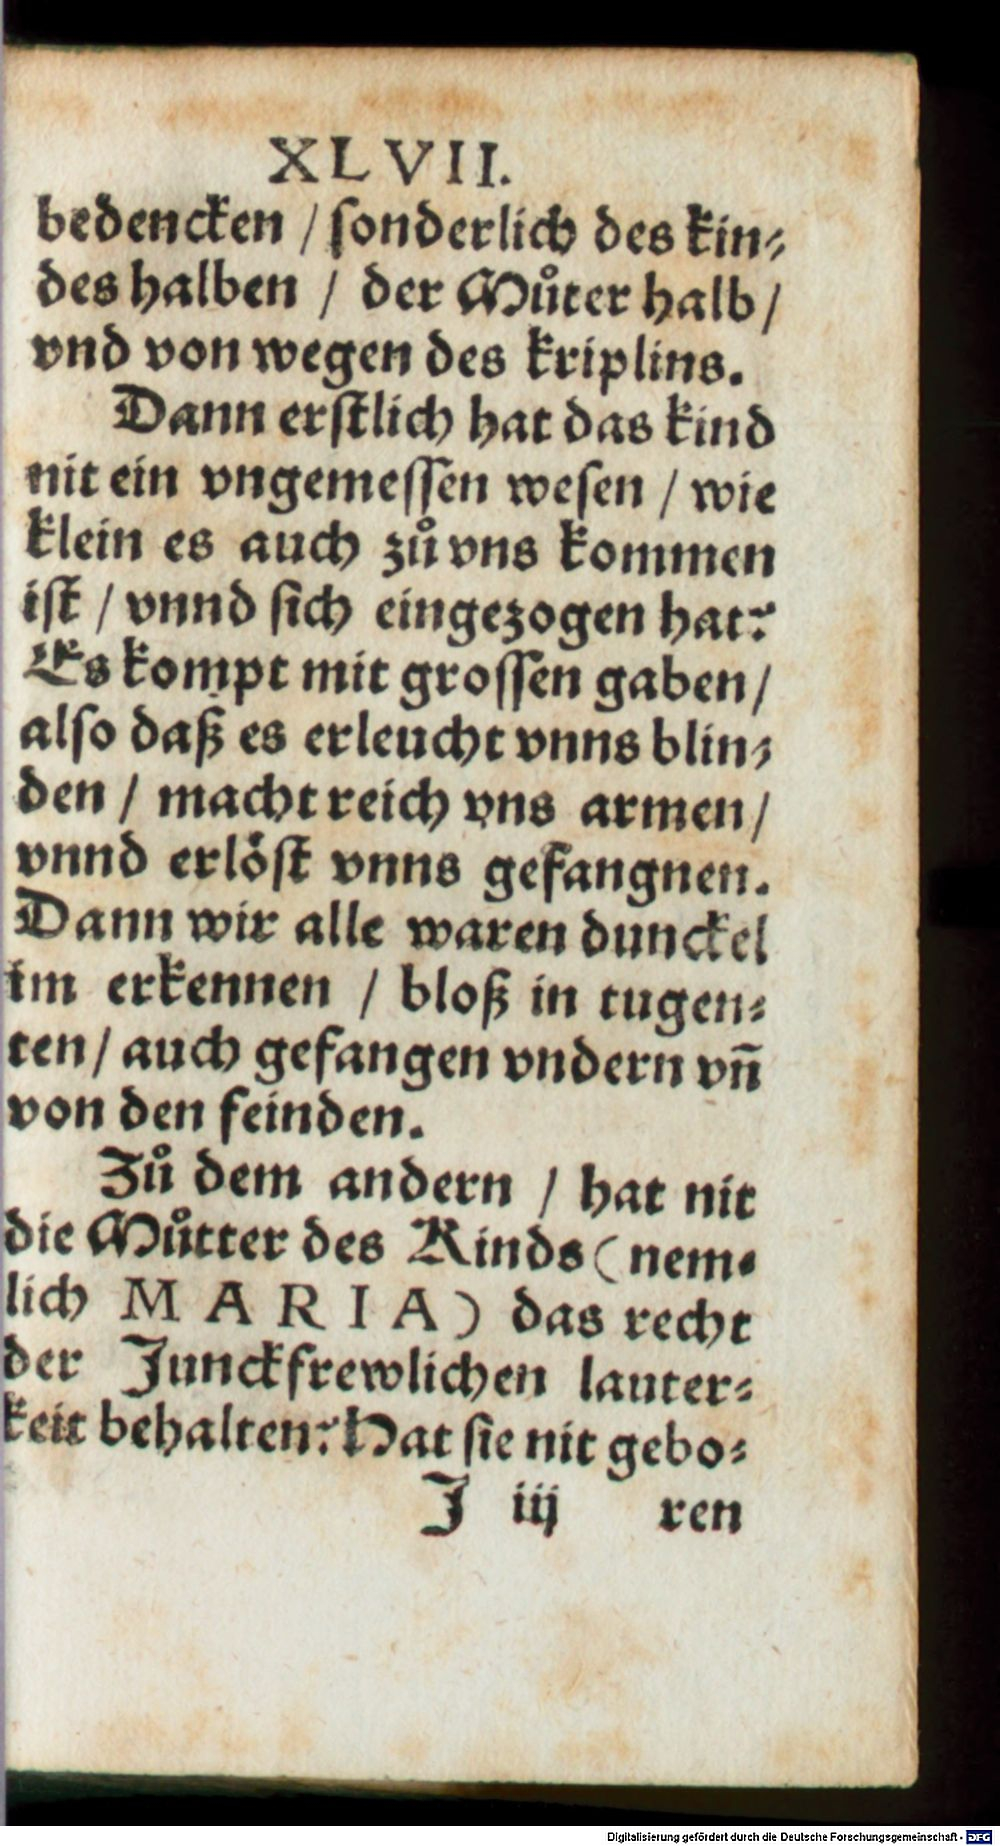 XLVII.
bedencken / sonderlich des kin-
des halben / der Můter halb /
vnd von wegen des kriplins.
Dann erstlich hat das kind
nit ein vngemessen wesen / wie
klein es auch zů vns kommen
ist / vnnd sich eingezogen hat?
Es kompt mit grossen gaben /
also daß es erleucht vnns blin-
den / macht reich vns armen /
vnnd erlöst vnns gefangnen.
Dann wir alle waren dunckel
im erkennen / bloß in tugen-
ten / auch gefangen vndern vn̄
von den feinden.
Zů dem andern / hat nit
die Můtter des Kinds (nem-
lich MARIA) das recht
der Junckfrewlichen lauter-
keit behalten? Hat sie nit gebo-
J iij ren
Digitalisierung gefördert durch die Deutsche Forschungsgemeinschaft - DFG